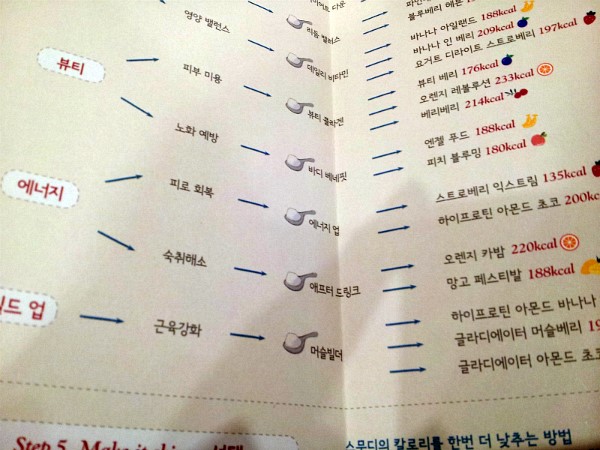 블루베리 헤븐
영양 밸런스
바나나 아일랜드 188kcal
바나나 인 베리 209kcal
요거트 디라이트 스트로베리 197kcal
데일리 비타민
뷰티
피부 미용
뷰티 콜라겐
뷰티 베리 176kcal
오렌지 레볼루션 233kcal
베리베리 214kcal
노화 예방
바디 베네핏
엔젤 푸드 188kcal
피치 블루밍 180kcal
에너지
피로 회복
에너지 업
스트로베리 익스트림 135kcal
하이프로틴 아몬드 초코 200kc
숙취해소
애프터 드링크
오렌지 카밤 220kcal
망고 페스티발 188kcal
드 업
근육강화
머슬빌더
하이프로틴 아몬드 바나나
글라디에이터 머슬베리 19
글라디에이터 아몬드 초코
Step 5. Make it
스무디의 칼로리를 한번 더 낮추는 방법